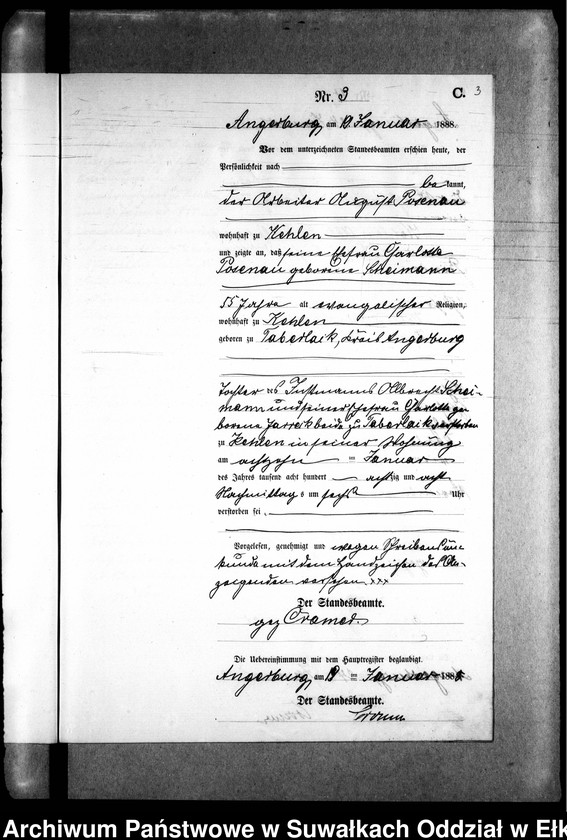 Nr. 3
C. 3
Angerburg am 19 Januar 1888.
Vor dem unterzeichneten Standesbeamten erschien heute, der
Persönlichkeit nach
be kannt,
der Arbeiter August Posenau
wohnhaft zu Kehlen
und zeigte an, daß seine Ehefrau Carlotte
Posenau geborene Scheimann
55 Jahre alt evangelischer Religion,
wohnhaft zu Kehlen
geboren zu Taberlack, Kreis Angerburg
Tochter des Instmanns Albrecht Schei-
mann und seiner Ehefrau Carlotte ge
borene beide zu Taberlack verstorben
zu Kehlen in seiner Wohnung
am achtzehn ten Januar
des Jahres tausend acht hundert achtzig und acht
Nachmittags um sechs Uhr
verstorben sei.
Vorgelesen, genehmigt und wegen Schreibensun-
kunde mit dem Handzeichen des An-
zeigenden versehen xxx
Der Standesbeamte.
gez Cramer.
Die Uebereinstimmung mit dem Hauptregister beglaubigt.
Angerburg am 19 ten Januar 1888
Der Standesbeamte.
Cramer
Archiwum Państwowe w Suwałkach Oddział w Ełk